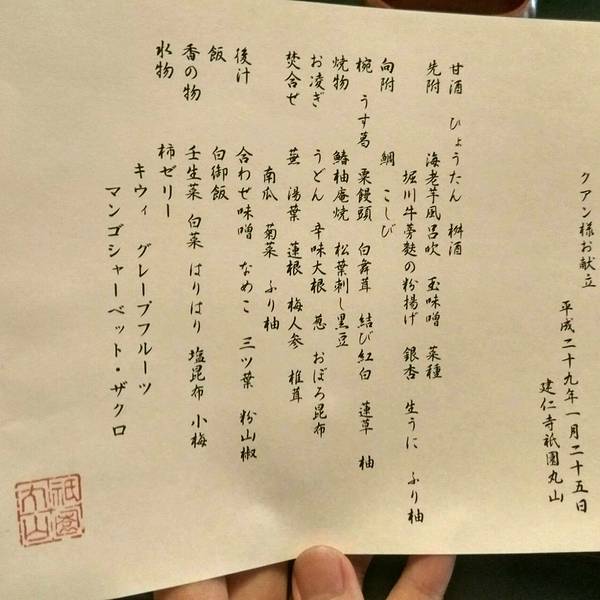 クアン様お献立
平成二十九年一月二十五日
建仁寺祇園丸山
甘酒 ひょうたん 桝酒
先附 海老芋風呂吹 玉味噌 菜種
堀川牛蒡麩の粉揚げ 銀杏 生うに ふり柚
向附 鯛 こしび
椀 うす葛 粟饅頭 白舞茸 結び紅白 蓮草 柚
焼物 鰆柚庵焼 松葉刺し黒豆
お凌ぎ うどん 辛味大根 葱 おぼろ昆布
焚合せ 蕪 湯葉 蓮根 梅人参 椎茸
南瓜 菊菜 ふり柚
後汁 合わせ味噌 なめこ 三ツ葉 粉山椒
飯 白御飯
香の物 壬生菜 白菜 はりはり 塩昆布 小梅
水物 柿ゼリー
キウィ グレープフルーツ
マンゴシャーベット・ザクロ
祇園
丸山